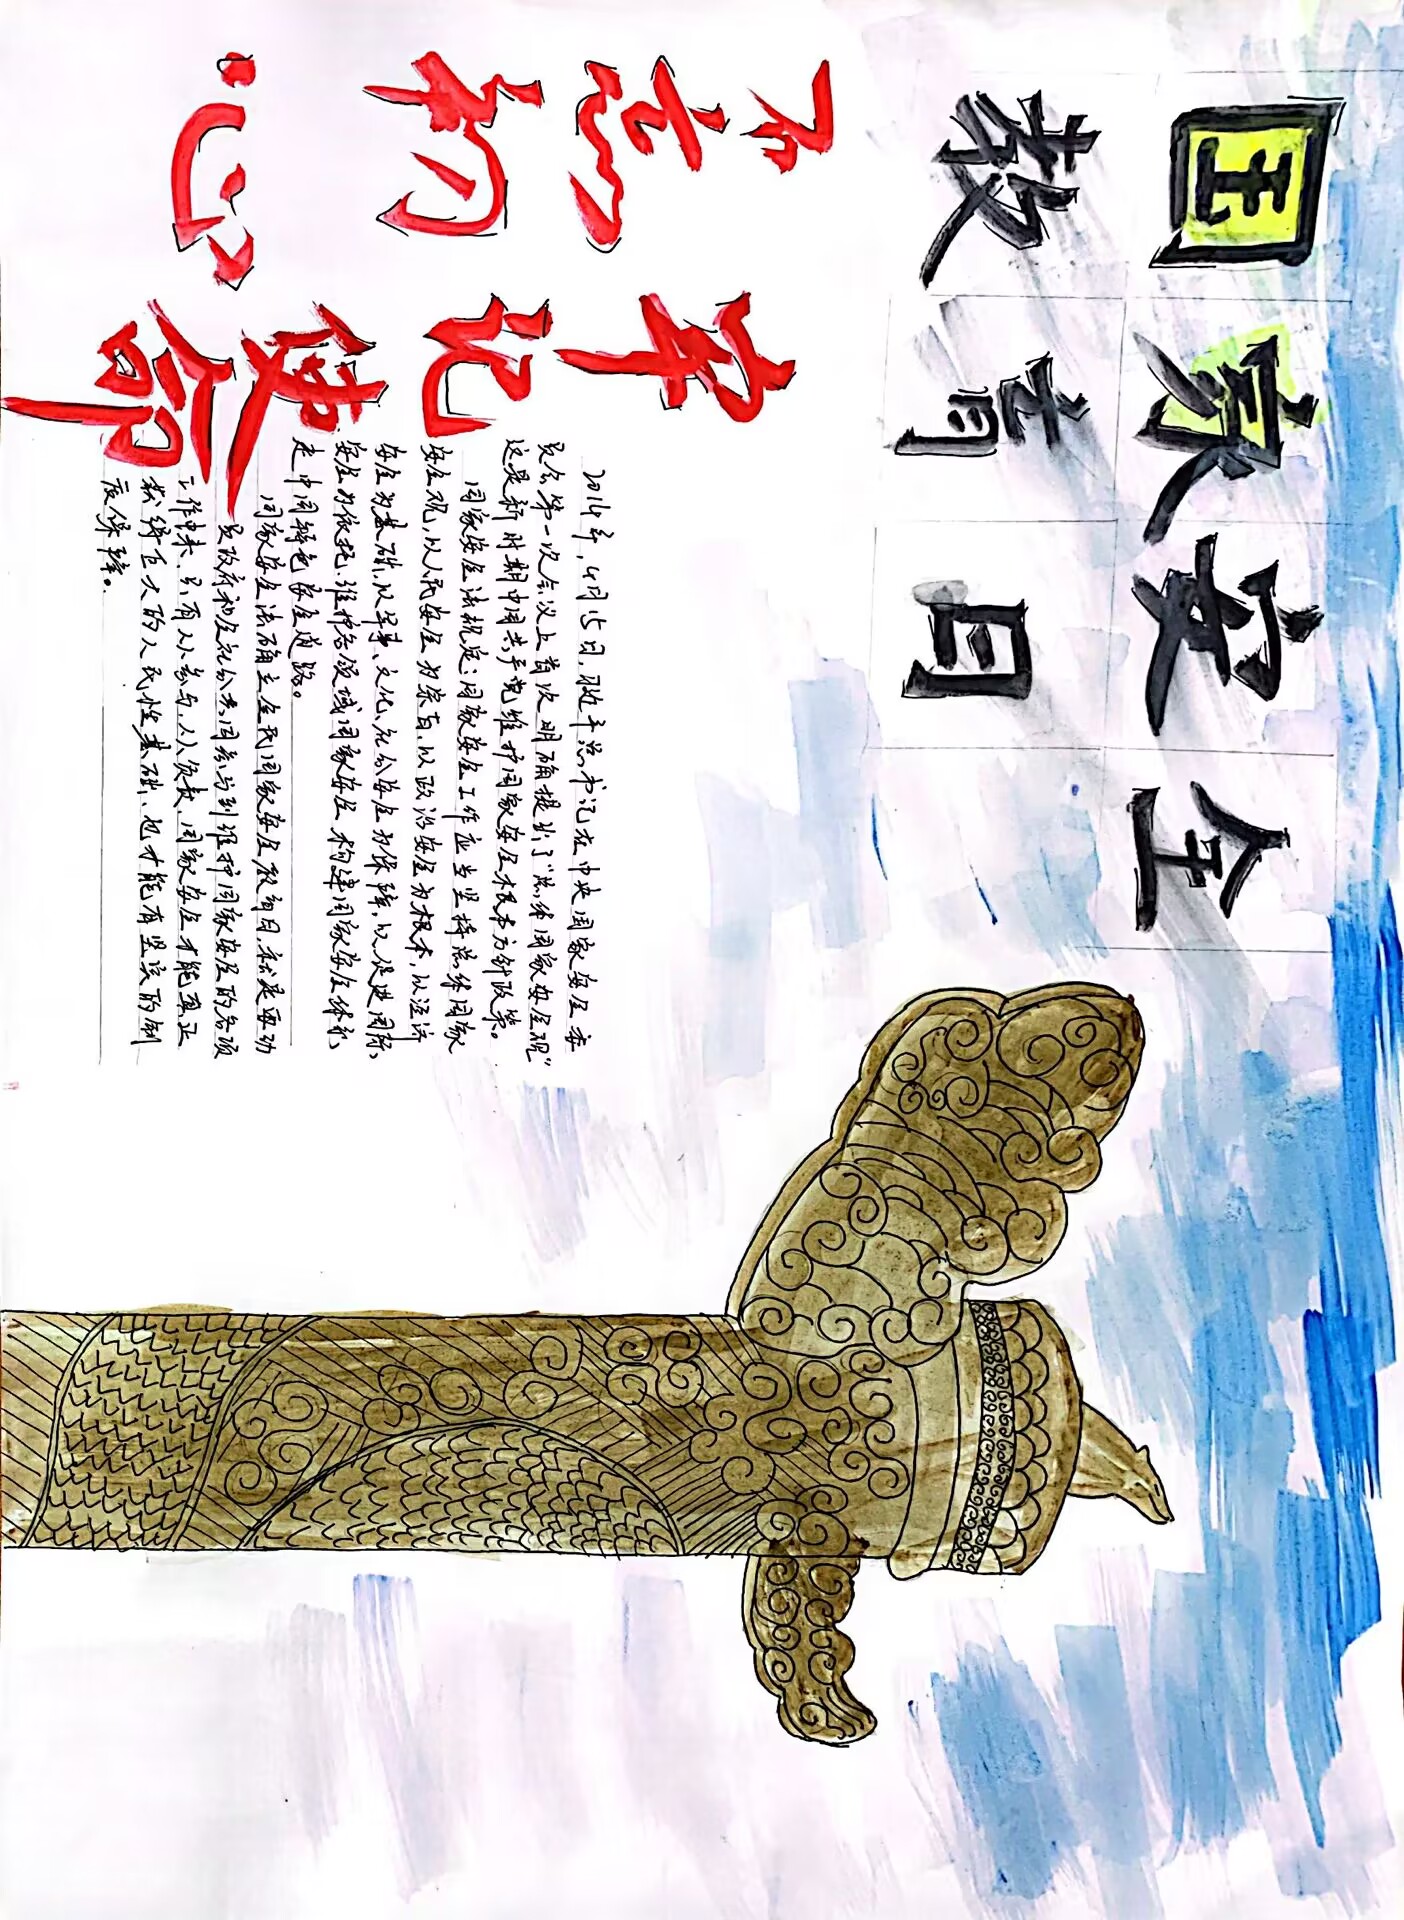 国家安全
教育日
不忘初心
牢记使命
2014年,4月15日,习近平总书记在中央国家安全委
员会第一次会议上首次明确提出了“总体国家安全观”
这是新时期中国共产党维护国家安全根本方针政策。
国家安全法规定:国家安全工作应当坚持总体国家
安全观,以人民安全为宗旨,以政治安全为根本,以经济
安全为基础,以军事、文化、社会安全为保障,以促进国际
安全为依托,维护各领域国家安全 构建国家安全体系,
走中国特色安全道路。
国家安全法确立全民国家安全教育日,就是要动
员政府和全社会共同参与到维护国家安全的各项
工作中来,只有人人参与,人人负责,国家安全才能真正
获得巨大的人民性基础,也才能有坚实的制
度保障。